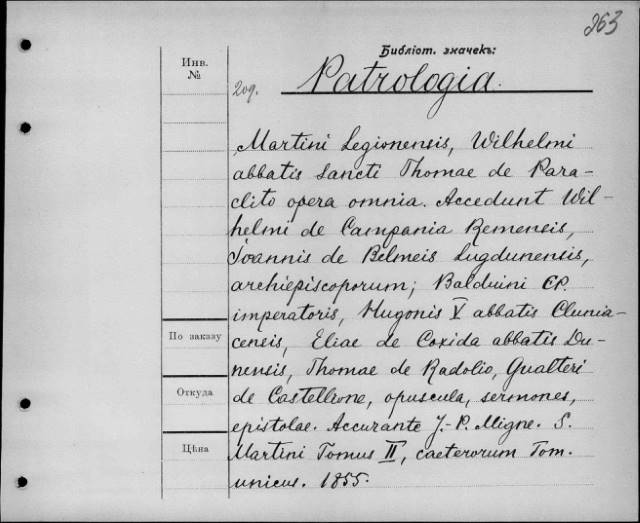 363
Библіот. значекъ:
Инв.
№
209.
Patrologia.
Martini Legionensis, Wilhelmi
abbatis Sancti Thomae de Para-
clito opera omnia. Accedunt Wil-
helmi de Campania Remensis,
Joannis de Belmeis Lugdunensis,
archiepiscoporum; Balduini CP.
imperatoris, Hugonis V abbatis Clunia-
censis, Eliae de Coxida abbatis Du-
nensis, Thomae de Radolio, Gualteri
de Castellione, opuscula, sermones,
epistolae. Accurante J.-P. Migne. S.
Martini Tomus II, caeterorum Tom.
unicus. 1855.
По заказу
Откуда
Цѣна